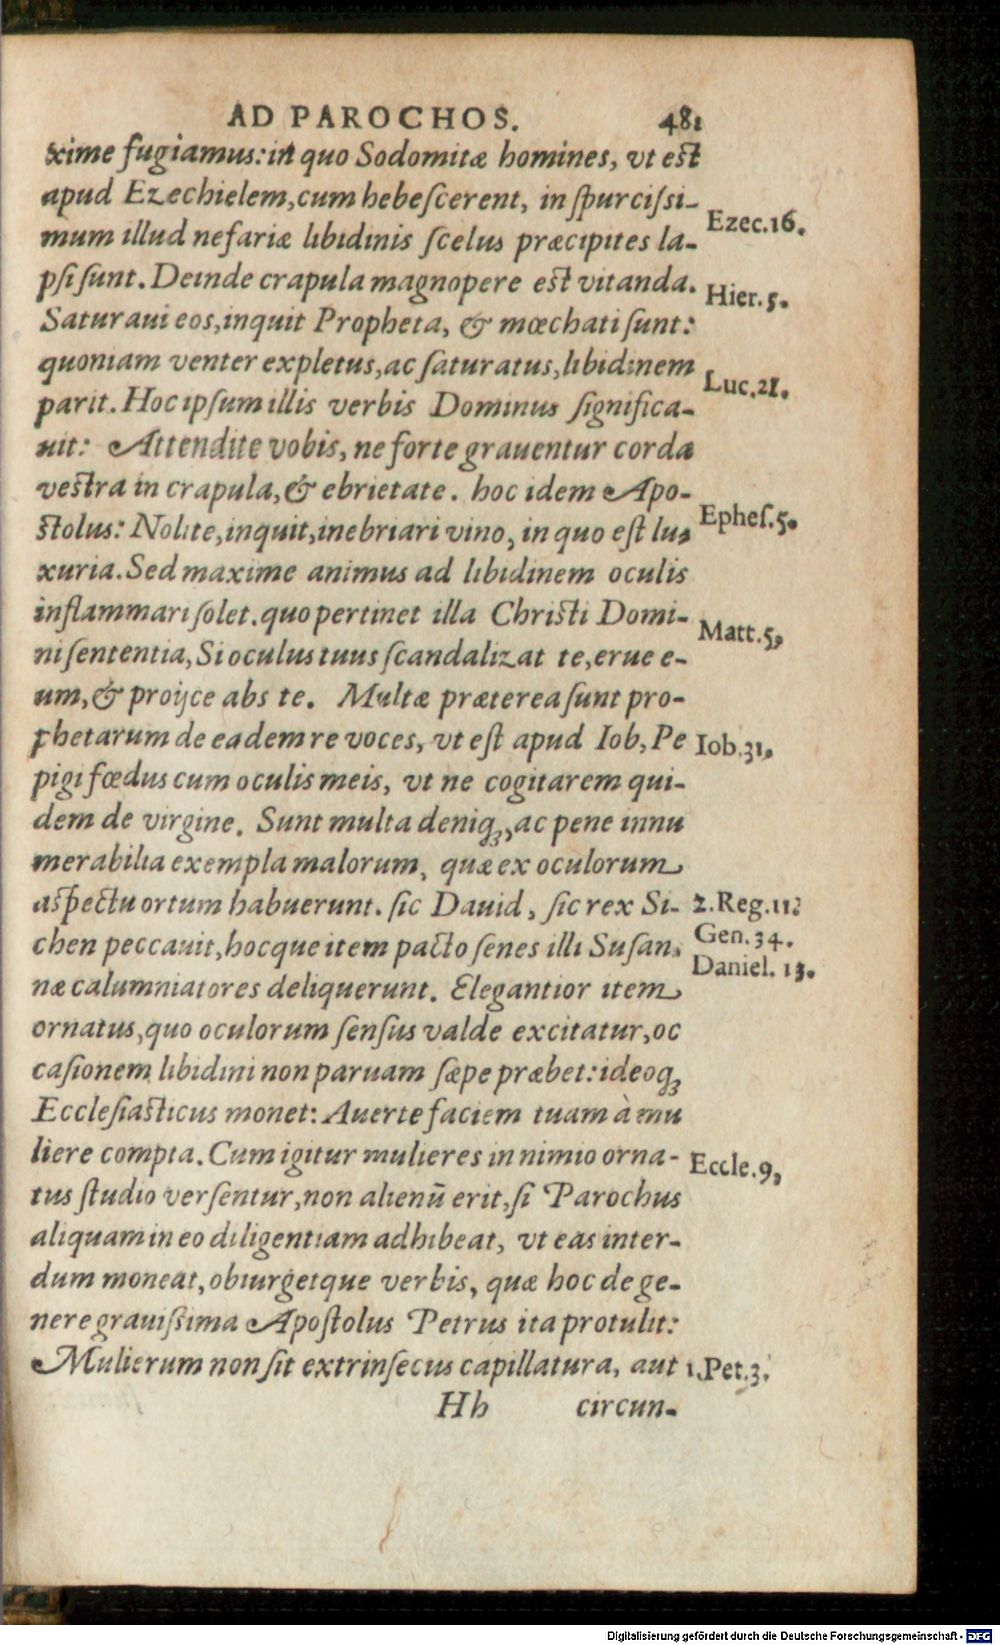 AD PAROCHOS. 481
xime fugiamus: in quo Sodomitæ homines, vt est
apud Ezechielem, cum hebeſcerent, in ſpurciſsi-
mum illud nefariæ libidinis ſcelus præcipites la-
Ezec.16.
pſi ſunt. Deinde crapula magnopere est vitanda.
Hier.5.
Saturaui eos, inquit Propheta, & mœchati ſunt:
quoniam venter expletus, ac ſaturatus, libidinem
Luc.21.
parit. Hoc ipſum illis verbis Dominus ſignifica-
uit: Attendite vobis, ne forte grauentur corda
vestra in crapula, & ebrietate. hoc idem Apo-
Epheſ.5.
stolus: Nolite, inquit, inebriari vino, in quo eſt lu-
xuria. Sed maxime animus ad libidinem oculis
inflammari ſolet. quo pertinet illa Christi Domi-
Matt.5,
ni ſententia, Si oculus tuus ſcandalizat te, erue e-
um, & proijce abs te. Multæ præterea ſunt pro-
phetarum de eadem re voces, vt eſt apud Iob, Pe
Iob.31.
pigi fœdus cum oculis meis, vt ne cogitarem qui-
dem de virgine. Sunt multa deniq;, ac pene innu
merabilia exempla malorum, quæ ex oculorum
aspectu ortum habuerunt. ſic Dauid, ſic rex Si-
2.Reg.11?
chen peccauit, hocque item pacto ſenes illi Suſan.
Gen.34.
Daniel. 13.
næ calumniatores deliquerunt. Elegantior item
ornatus, quo oculorum ſenſus valde excitatur, oc
caſionem libidini non paruam ſæpe præbet: ideoq;
Eccleſiasticus monet: Auerte faciem tuam à mu
liere compta. Cum igitur mulieres in nimio orna-
Eccle.9,
tus ſtudio verſentur, non alienũ erit, ſi Parochus
aliquam in eo diligentiam adhibeat, vt eas inter-
dum moneat, obiurgetque verbis, quæ hoc de ge-
nere grauiſsima Apoſtolus Petrus ita protulit:
Mulierum non ſit extrinſecus capillatura, aut
1.Pet.3.
Hh circun-
Digitalisierung gefördert durch die Deutsche Forschungsgemeinschaft - DFG